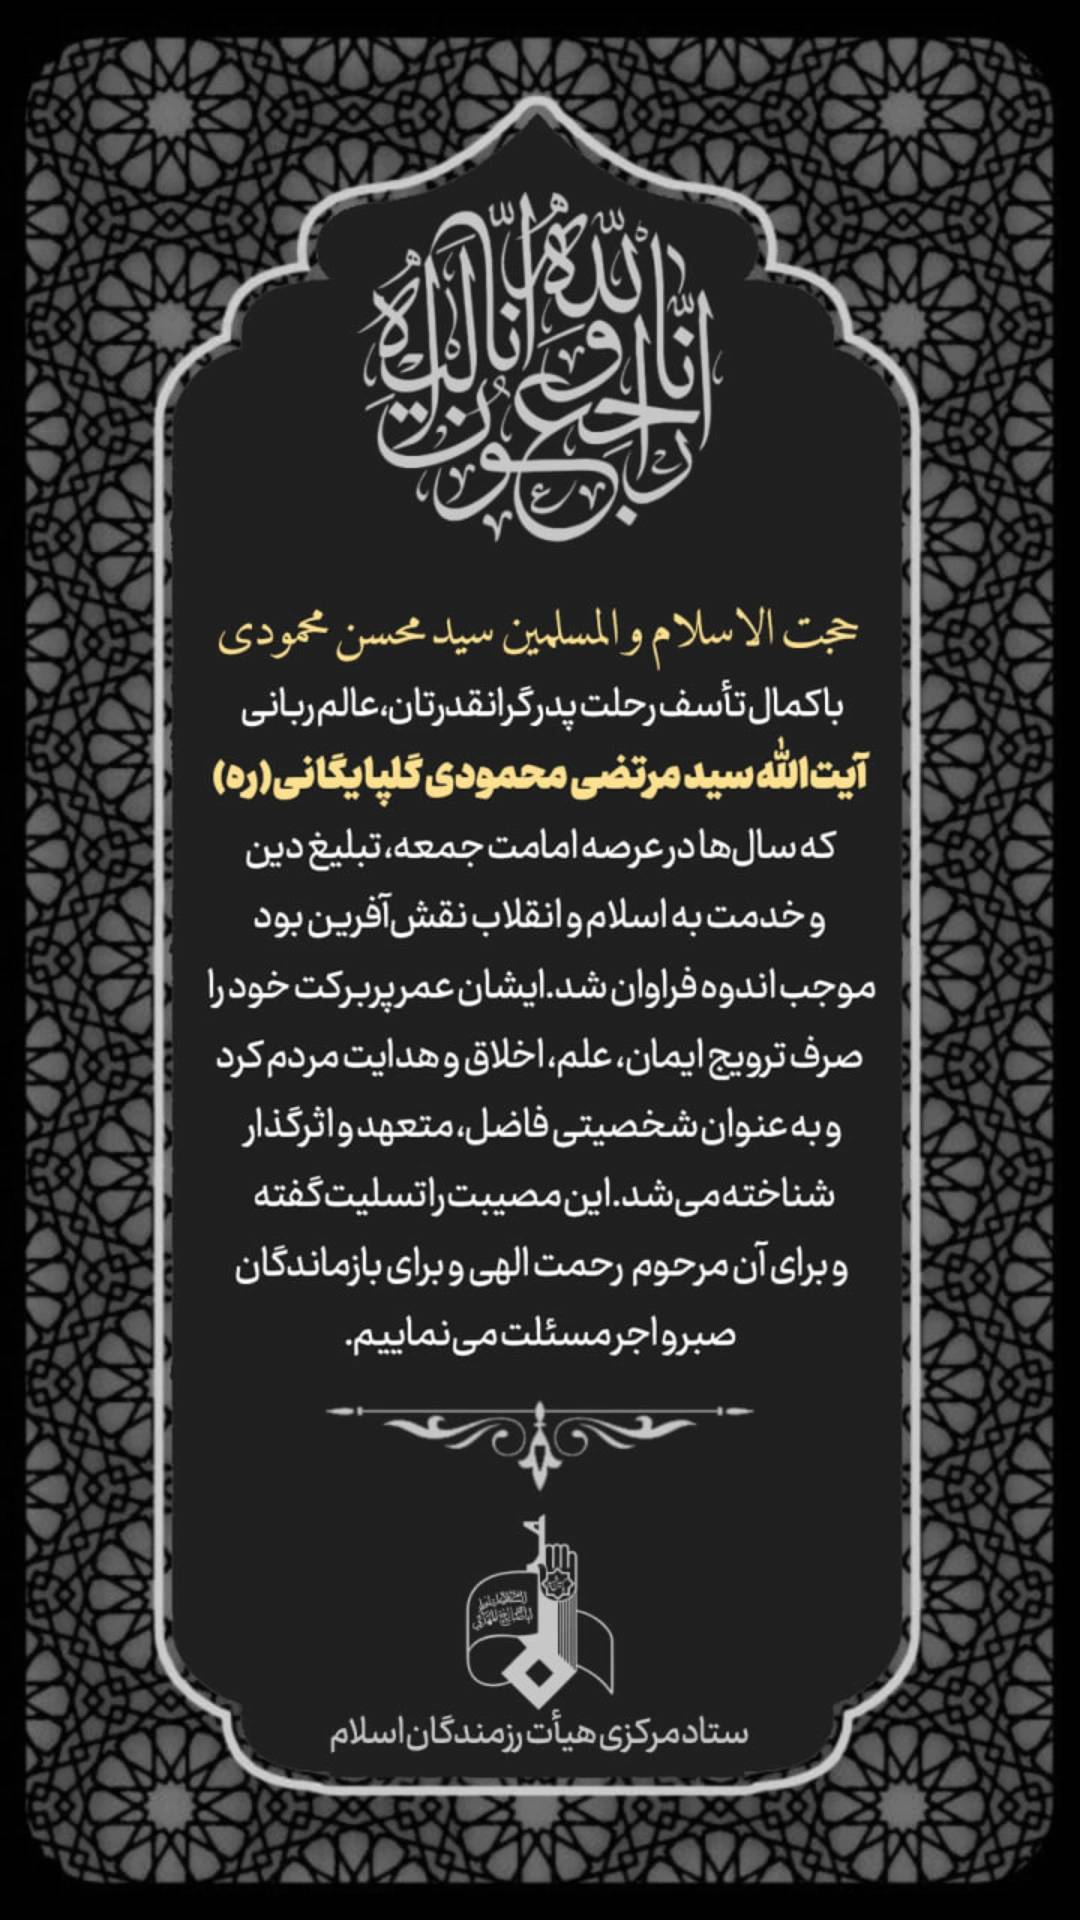 انا لله و انا الیه راجعون
حجت الاسلام و المسلمین سید محسن محمودی
با کمال تأسف رحلت پدر گرانقدرتان، عالم ربانی
آیت‌الله سید مرتضی محمودی گلپایگانی(ره)
که سال‌ها در عرصه امامت جمعه، تبلیغ دین
و خدمت به اسلام و انقلاب نقش‌آفرین بود
موجب اندوه فراوان شد. ایشان عمر پربرکت خود را
صرف ترویج ایمان، علم، اخلاق و هدایت مردم کرد
و به عنوان شخصیتی فاضل، متعهد و اثرگذار
شناخته می‌شد. این مصیبت را تسلیت گفته
و برای آن مرحوم رحمت الهی و برای بازماندگان
صبر و اجر مسئلت می‌نماییم.
ستاد مرکزی هیأت رزمندگان اسلام